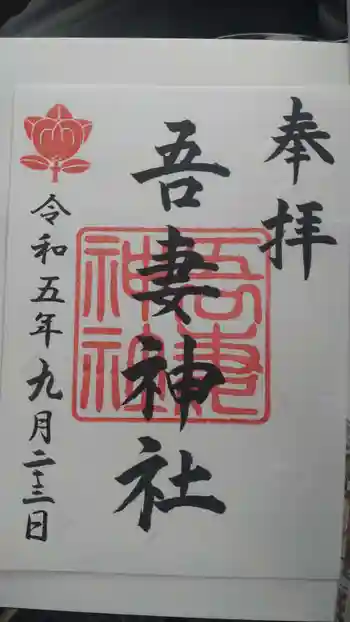 奉拝
吾妻神社
吾妻
神社
令和五年九月二十三日